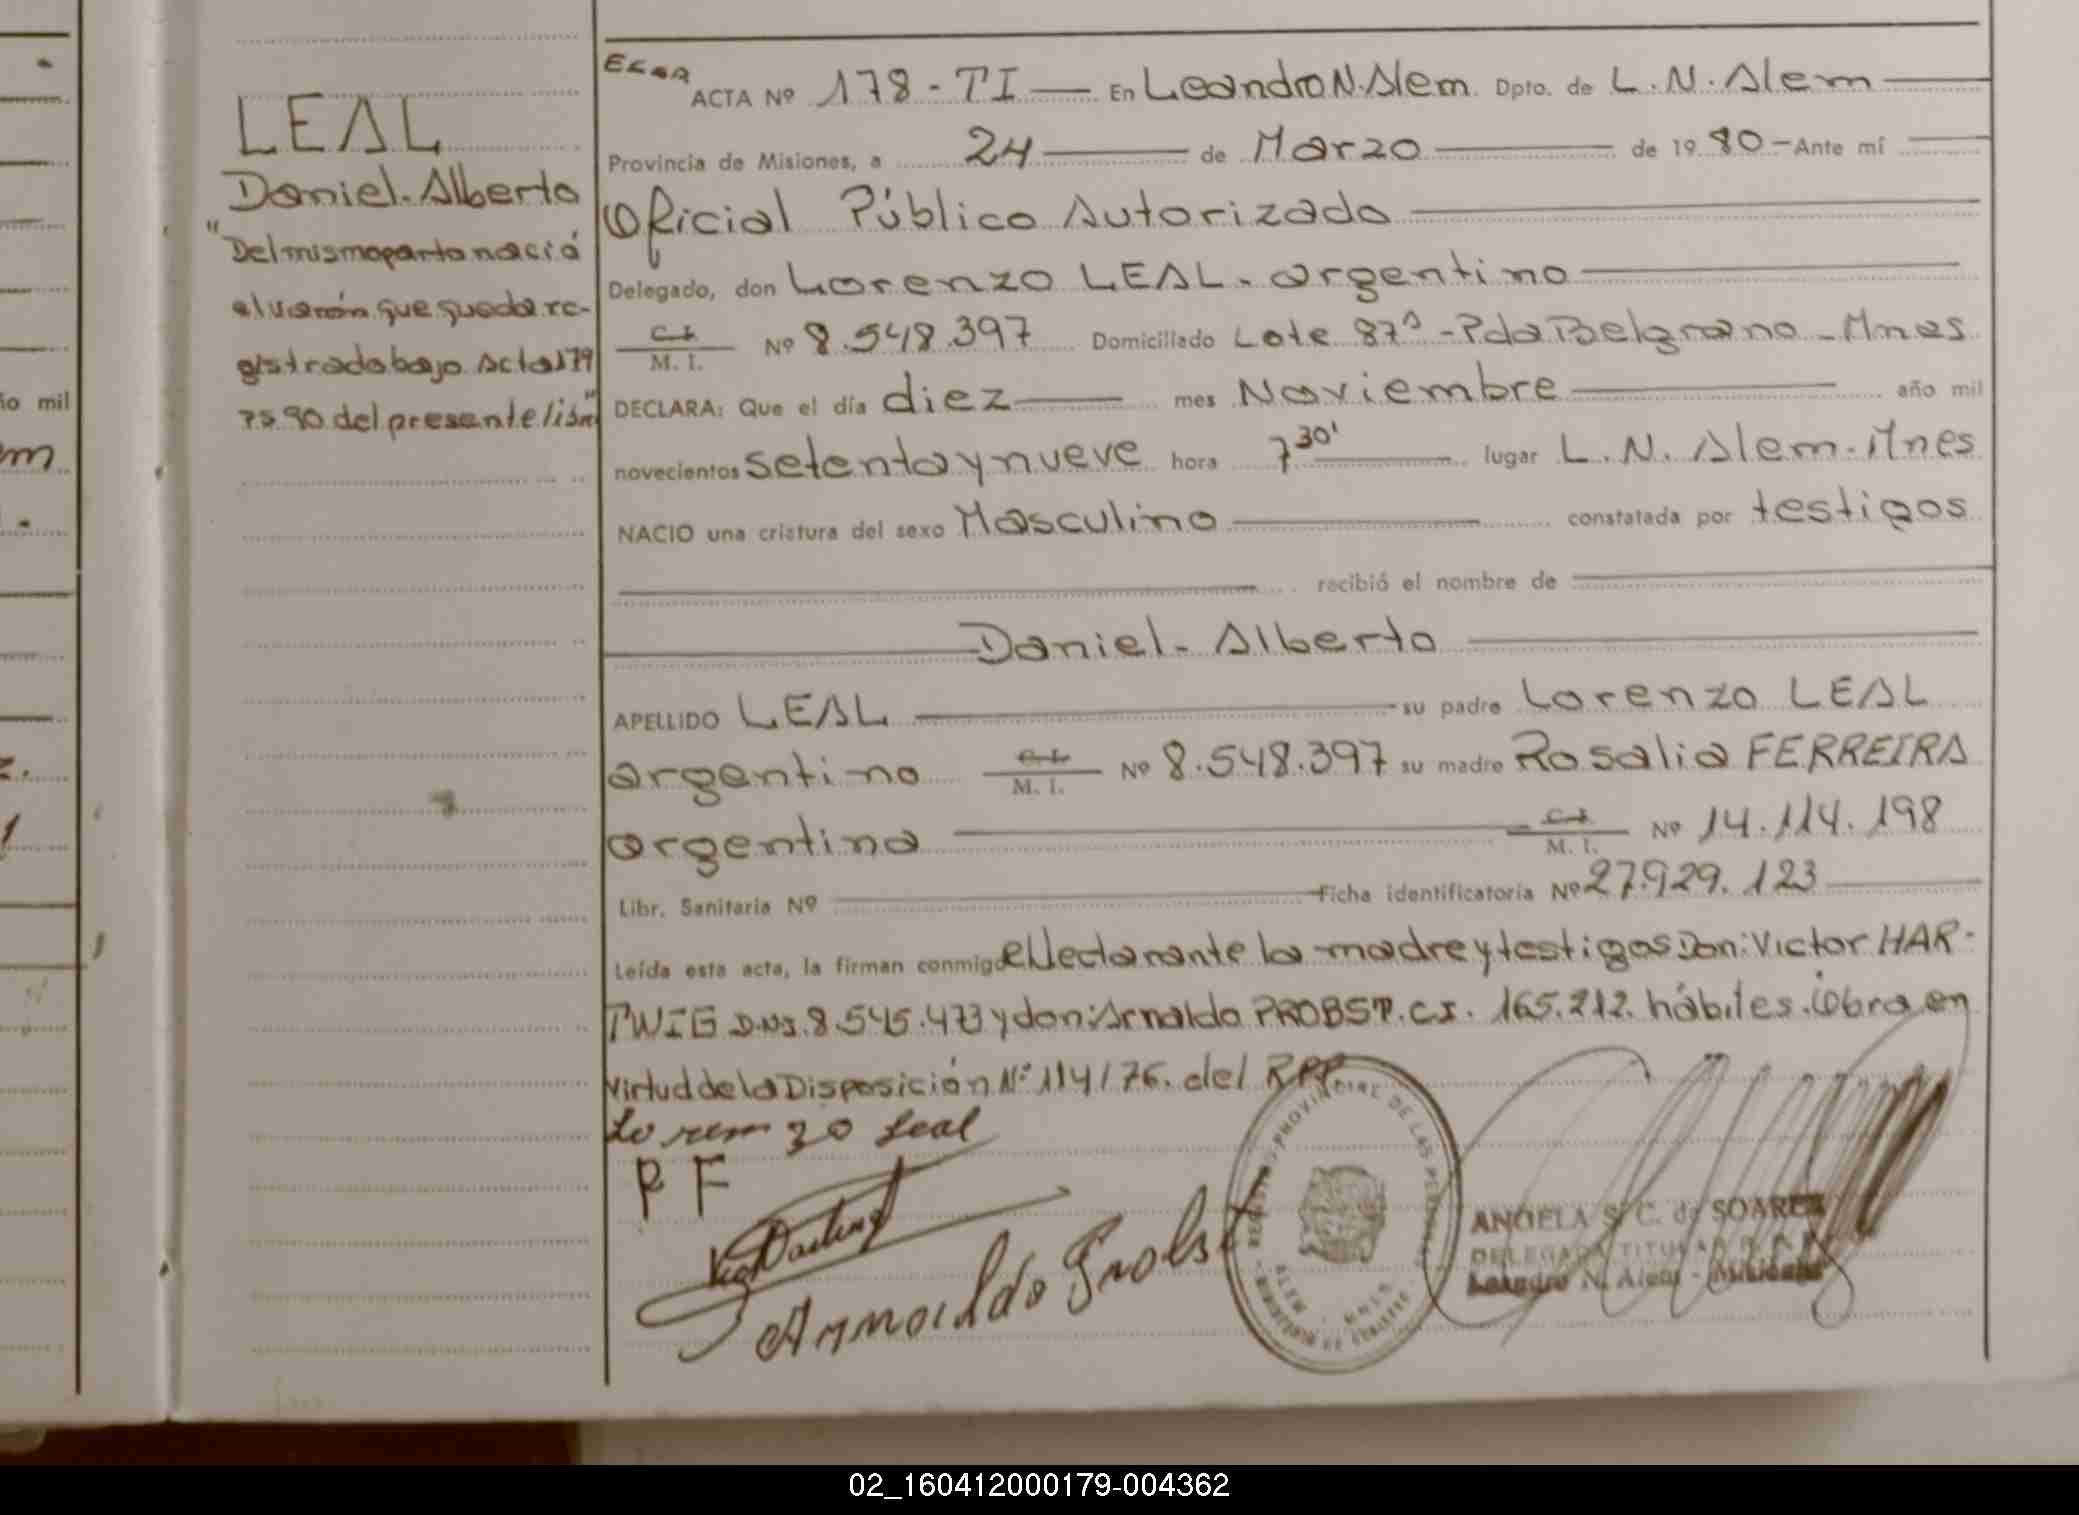 LEAL
Daniel-Alberto
"Del mismo parto nació
el varón que queda re-
gistrado bajo Acta 179
Tº 90 del presente libro"
ACTA Nº 178-TI En Leandro N. Alem Dpto. de L. N. Alem
Provincia de Misiones, a 24 de Marzo de 1980 - Ante mí
Oficial Público Autorizado
Delegado, don Lorenzo LEAL - argentino
C.I. M. I. Nº 8.548.397 Domiciliado Lote 87ª - Pda Belgrano - Mnes
DECLARA: Que el día diez mes Noviembre año mil
novecientos setenta y nueve hora 7 30' lugar L. N. Alem - Mnes
NACIO una criatura del sexo Masculino constatada por testigos
recibió el nombre de
Daniel-Alberto
APELLIDO LEAL su padre Lorenzo LEAL
argentino C.I. M. I. Nº 8.548.397 su madre Rosalia FERREIRA
argentina C.I. M. I. Nº 14.114.198
Libr. Sanitaria Nº Ficha identificatoria Nº 27.929.123
Leída esta acta, la firman conmigo el declarante la madre y testigos Don: Victor HAR-
TWIG D.N.I. 8.545.473 y don: Arnaldo PROBST. C.I. 165.212. hábiles. Obra en
virtud de la Disposición Nº 114/76. del RPP
Lorenzo Leal
R F
Arnoldo Probst
REGISTRO PROVINCIAL DE LAS PERSONAS
ALEM - MNES
ANGELA S. C. de SOAREZ
DELEGADA TITULAR R.P.P.
Leandro N. Alem - Misiones
ño mil
em
02_160412000179-004362